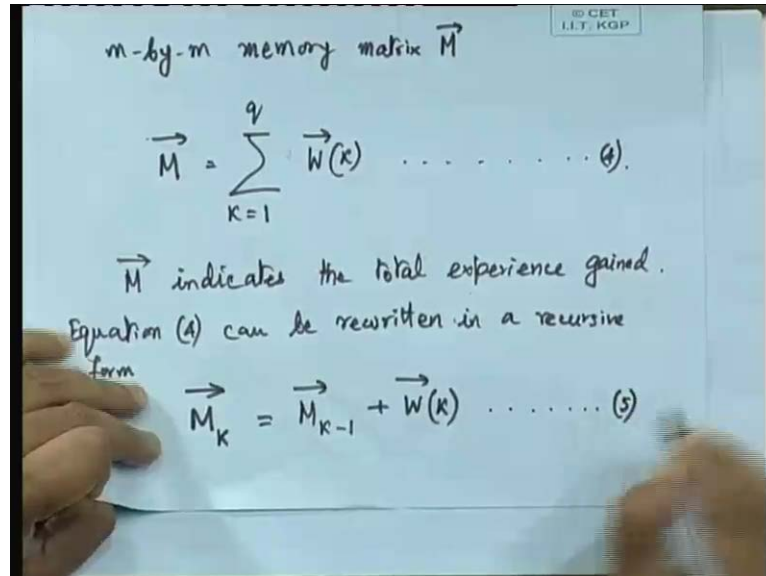 © CET
I.I.T. KGP
m-by-m memory matrix M⃗
M⃗ = q∑K=1 W⃗(K) .......... (4).
M⃗ indicates the total experience gained.
Equation (4) can be rewritten in a recursive
form
M⃗_K = M⃗_K-1 + W⃗(K) ....... (5)